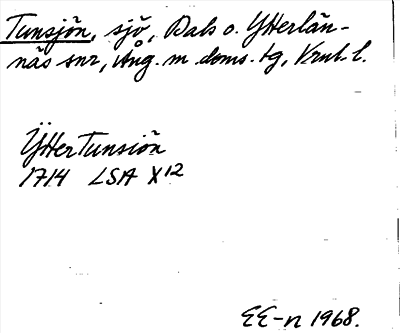 Tunsjön, sjö, Dals o. Ytterlän-
näs snr, Ång. m. doms. tg, Vrnl. l.
Ÿtter Tunsiön
1714 LSA X12
EE-n 1968.